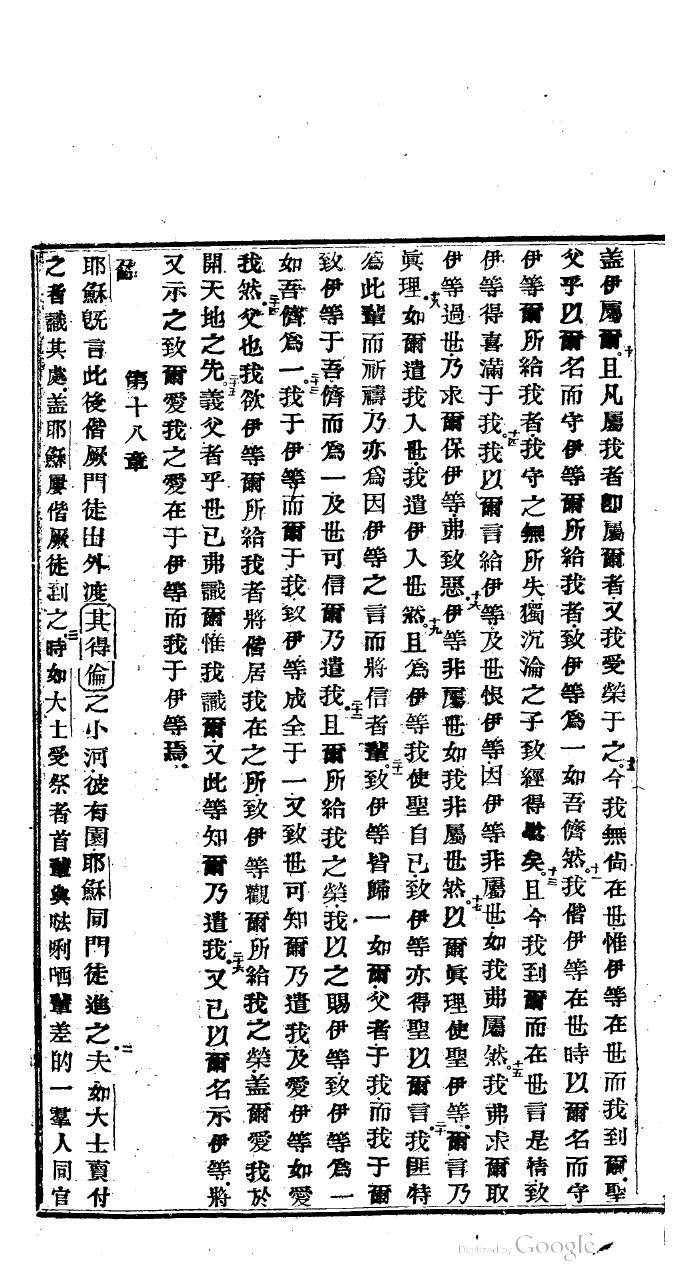 盖伊屬爾十且凡屬我者即屬爾者又我受榮于之十一今我無尙在世惟伊等在世而我到爾聖
父乎以爾名而守伊等爾所給我者致伊等爲一如吾儕然十二我偕伊等在世時以爾名而守
伊等爾所給我者我守之無所失獨沉淪之子致經得驗矣十三且今我到爾而在世言是情致
伊等得喜滿于我十四我以爾言給伊等及世恨伊等因伊等非屬世如我弗屬然十五我弗求爾取
伊等過世乃求爾保伊等弗致惡十六伊等非屬世如我非屬世然十七以爾眞理使聖伊等爾言乃
眞理十八如爾遣我入世我遣伊入世然十九且爲伊等我使聖自已致伊等亦得聖以爾言二十我匪特
爲此輩而祈禱乃亦爲因伊等之言而將信者輩二十一致伊等皆歸一如爾父者于我而我于爾
致伊等于吾儕而爲一及世可信爾乃遣我二十二且爾所給我之榮我以之賜伊等致伊等爲一
如吾儕爲一二十三我于伊等而爾于我致伊等成全于一又致世可知爾乃遣我及愛伊等如愛
我然二十四父也我欲伊等爾所給我者將偕居我在之所致伊等觀爾所給我之榮盖爾愛我於
開天地之先二十五義父者乎世已弗識爾惟我識爾又此等知爾乃遣我二十六又已以爾名示伊等將
又示之致爾愛我之愛在于伊等而我于伊等焉
第十八章
耶穌旣言此後偕厥門徒出外渡其得倫之小河彼有園耶穌同門徒進之二夫如大士賣付
之者識其處盖耶穌屢偕厥徒到之三時如大士受祭者首輩與𠵽唎哂輩差的一羣人同官